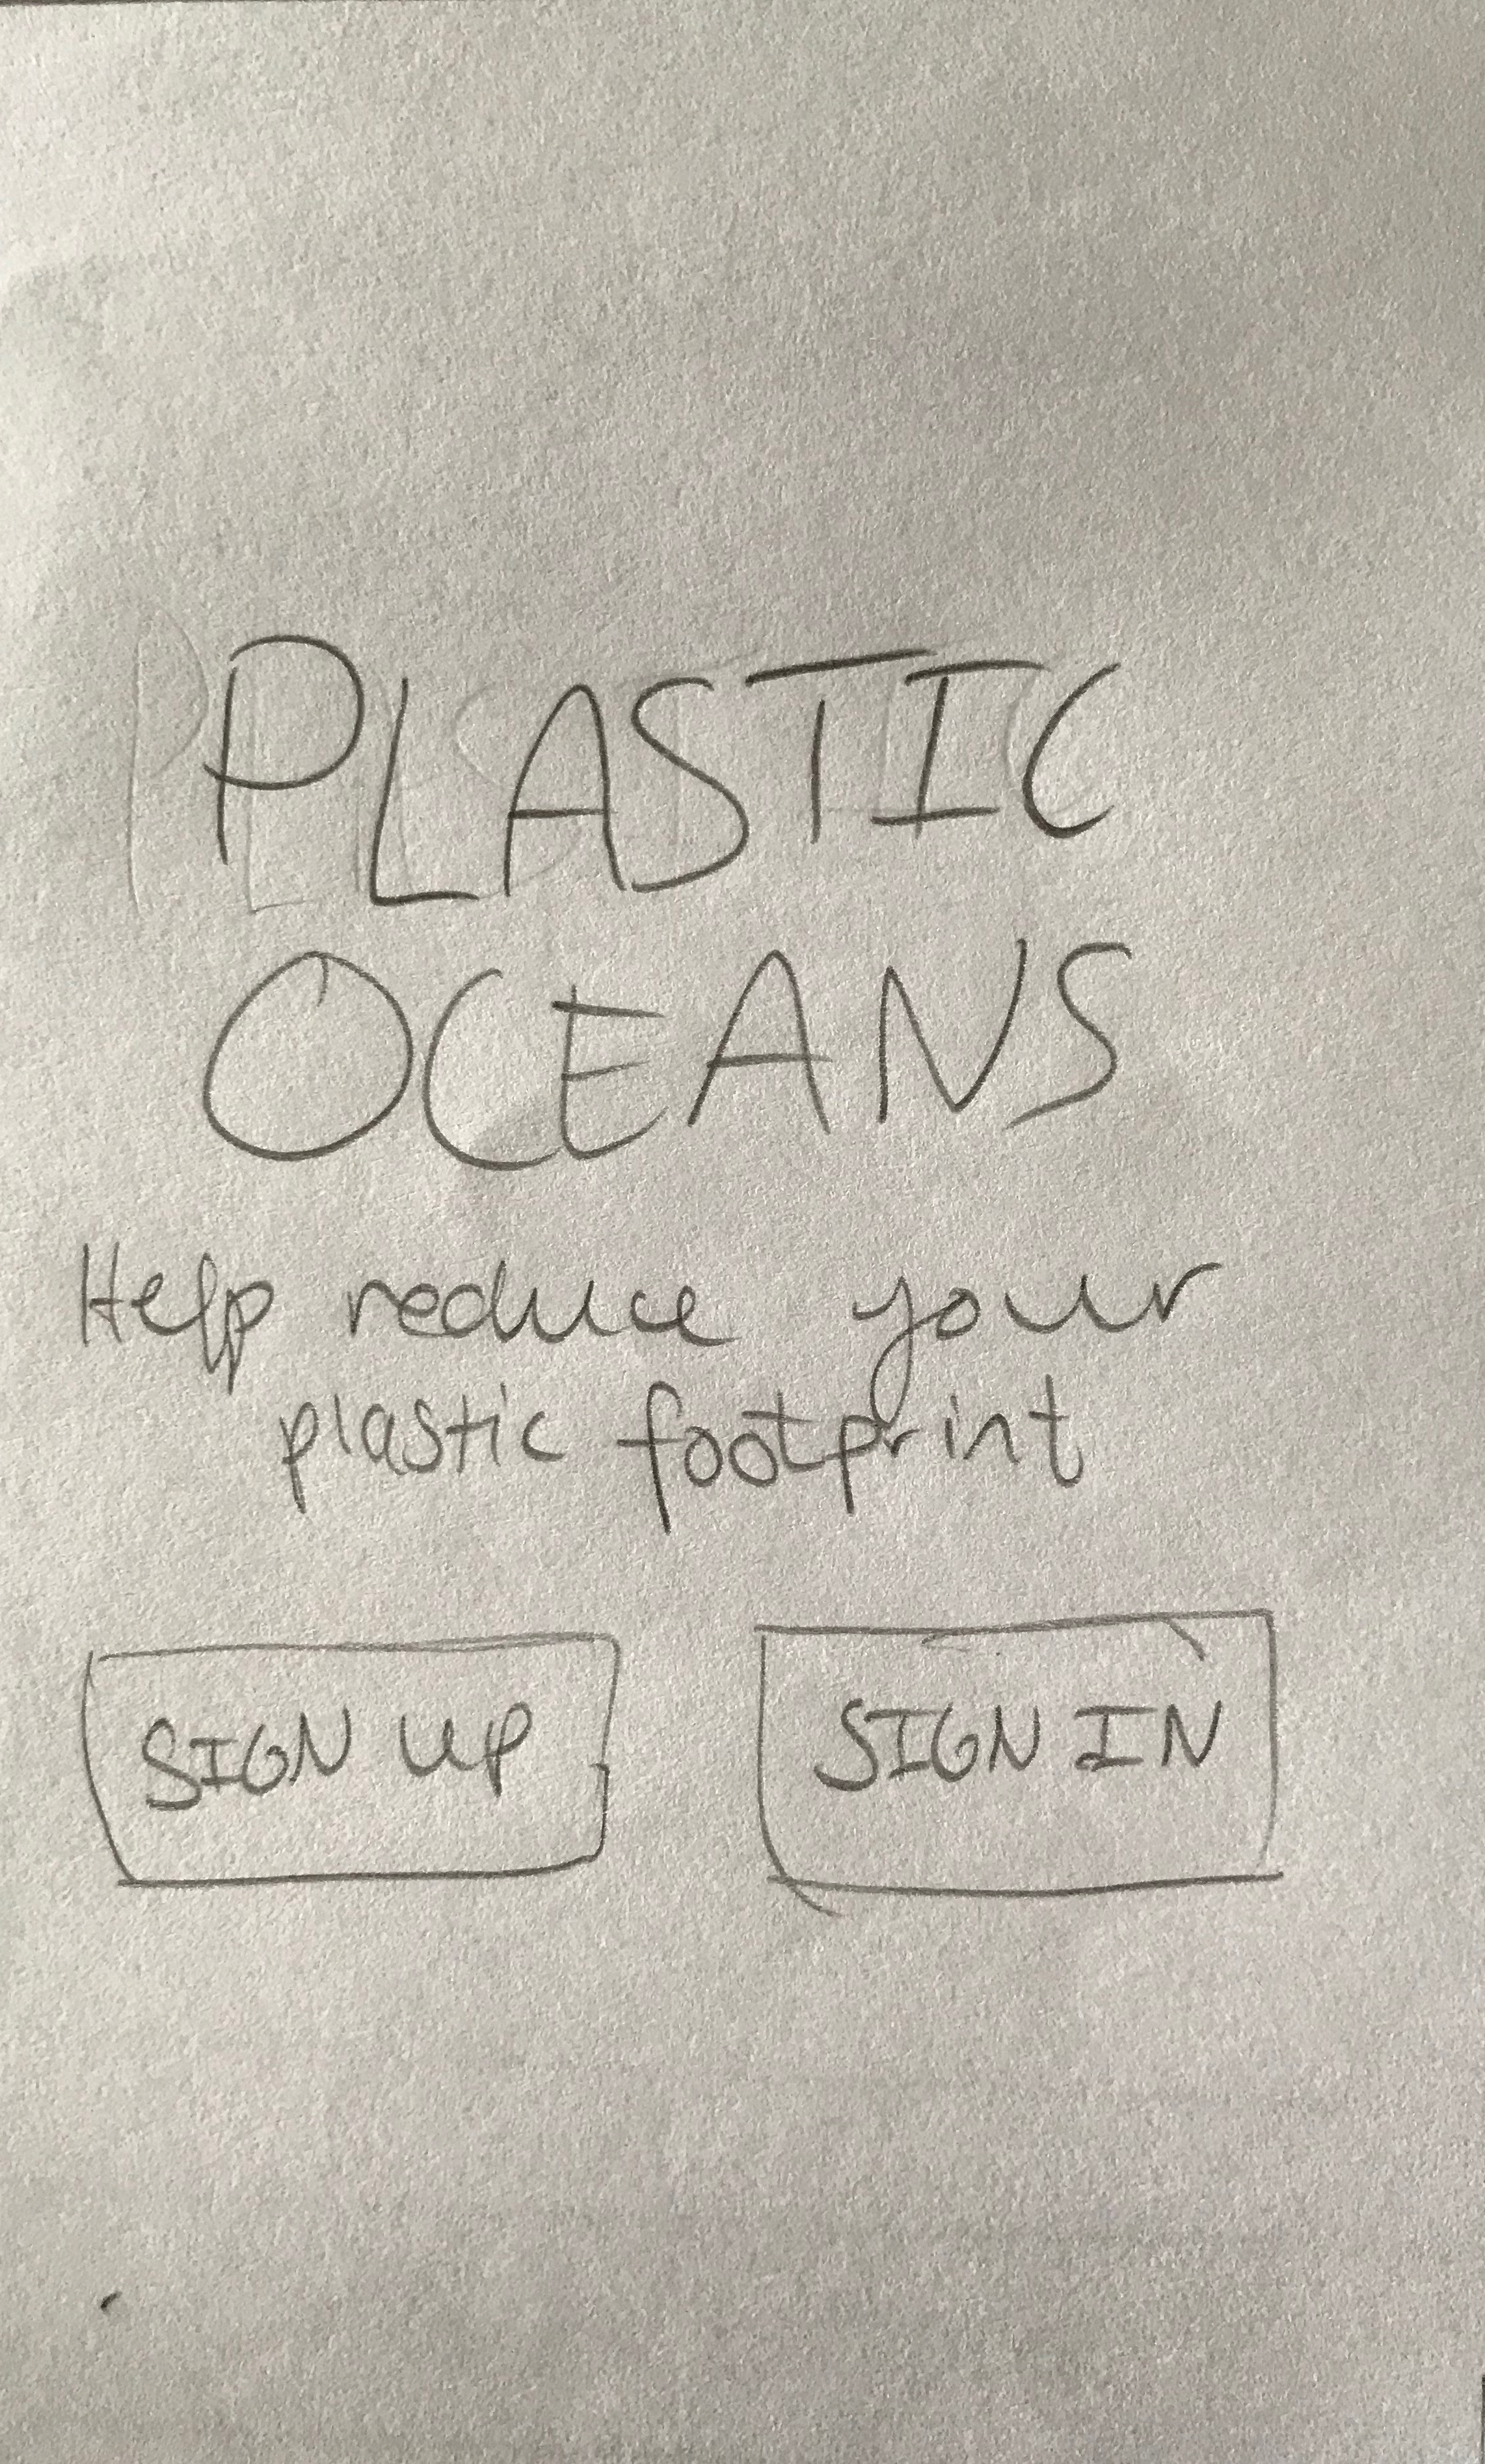 PLASTIC
OCEANS
Help reduce your
plastic footprint
SIGN UP SIGN IN